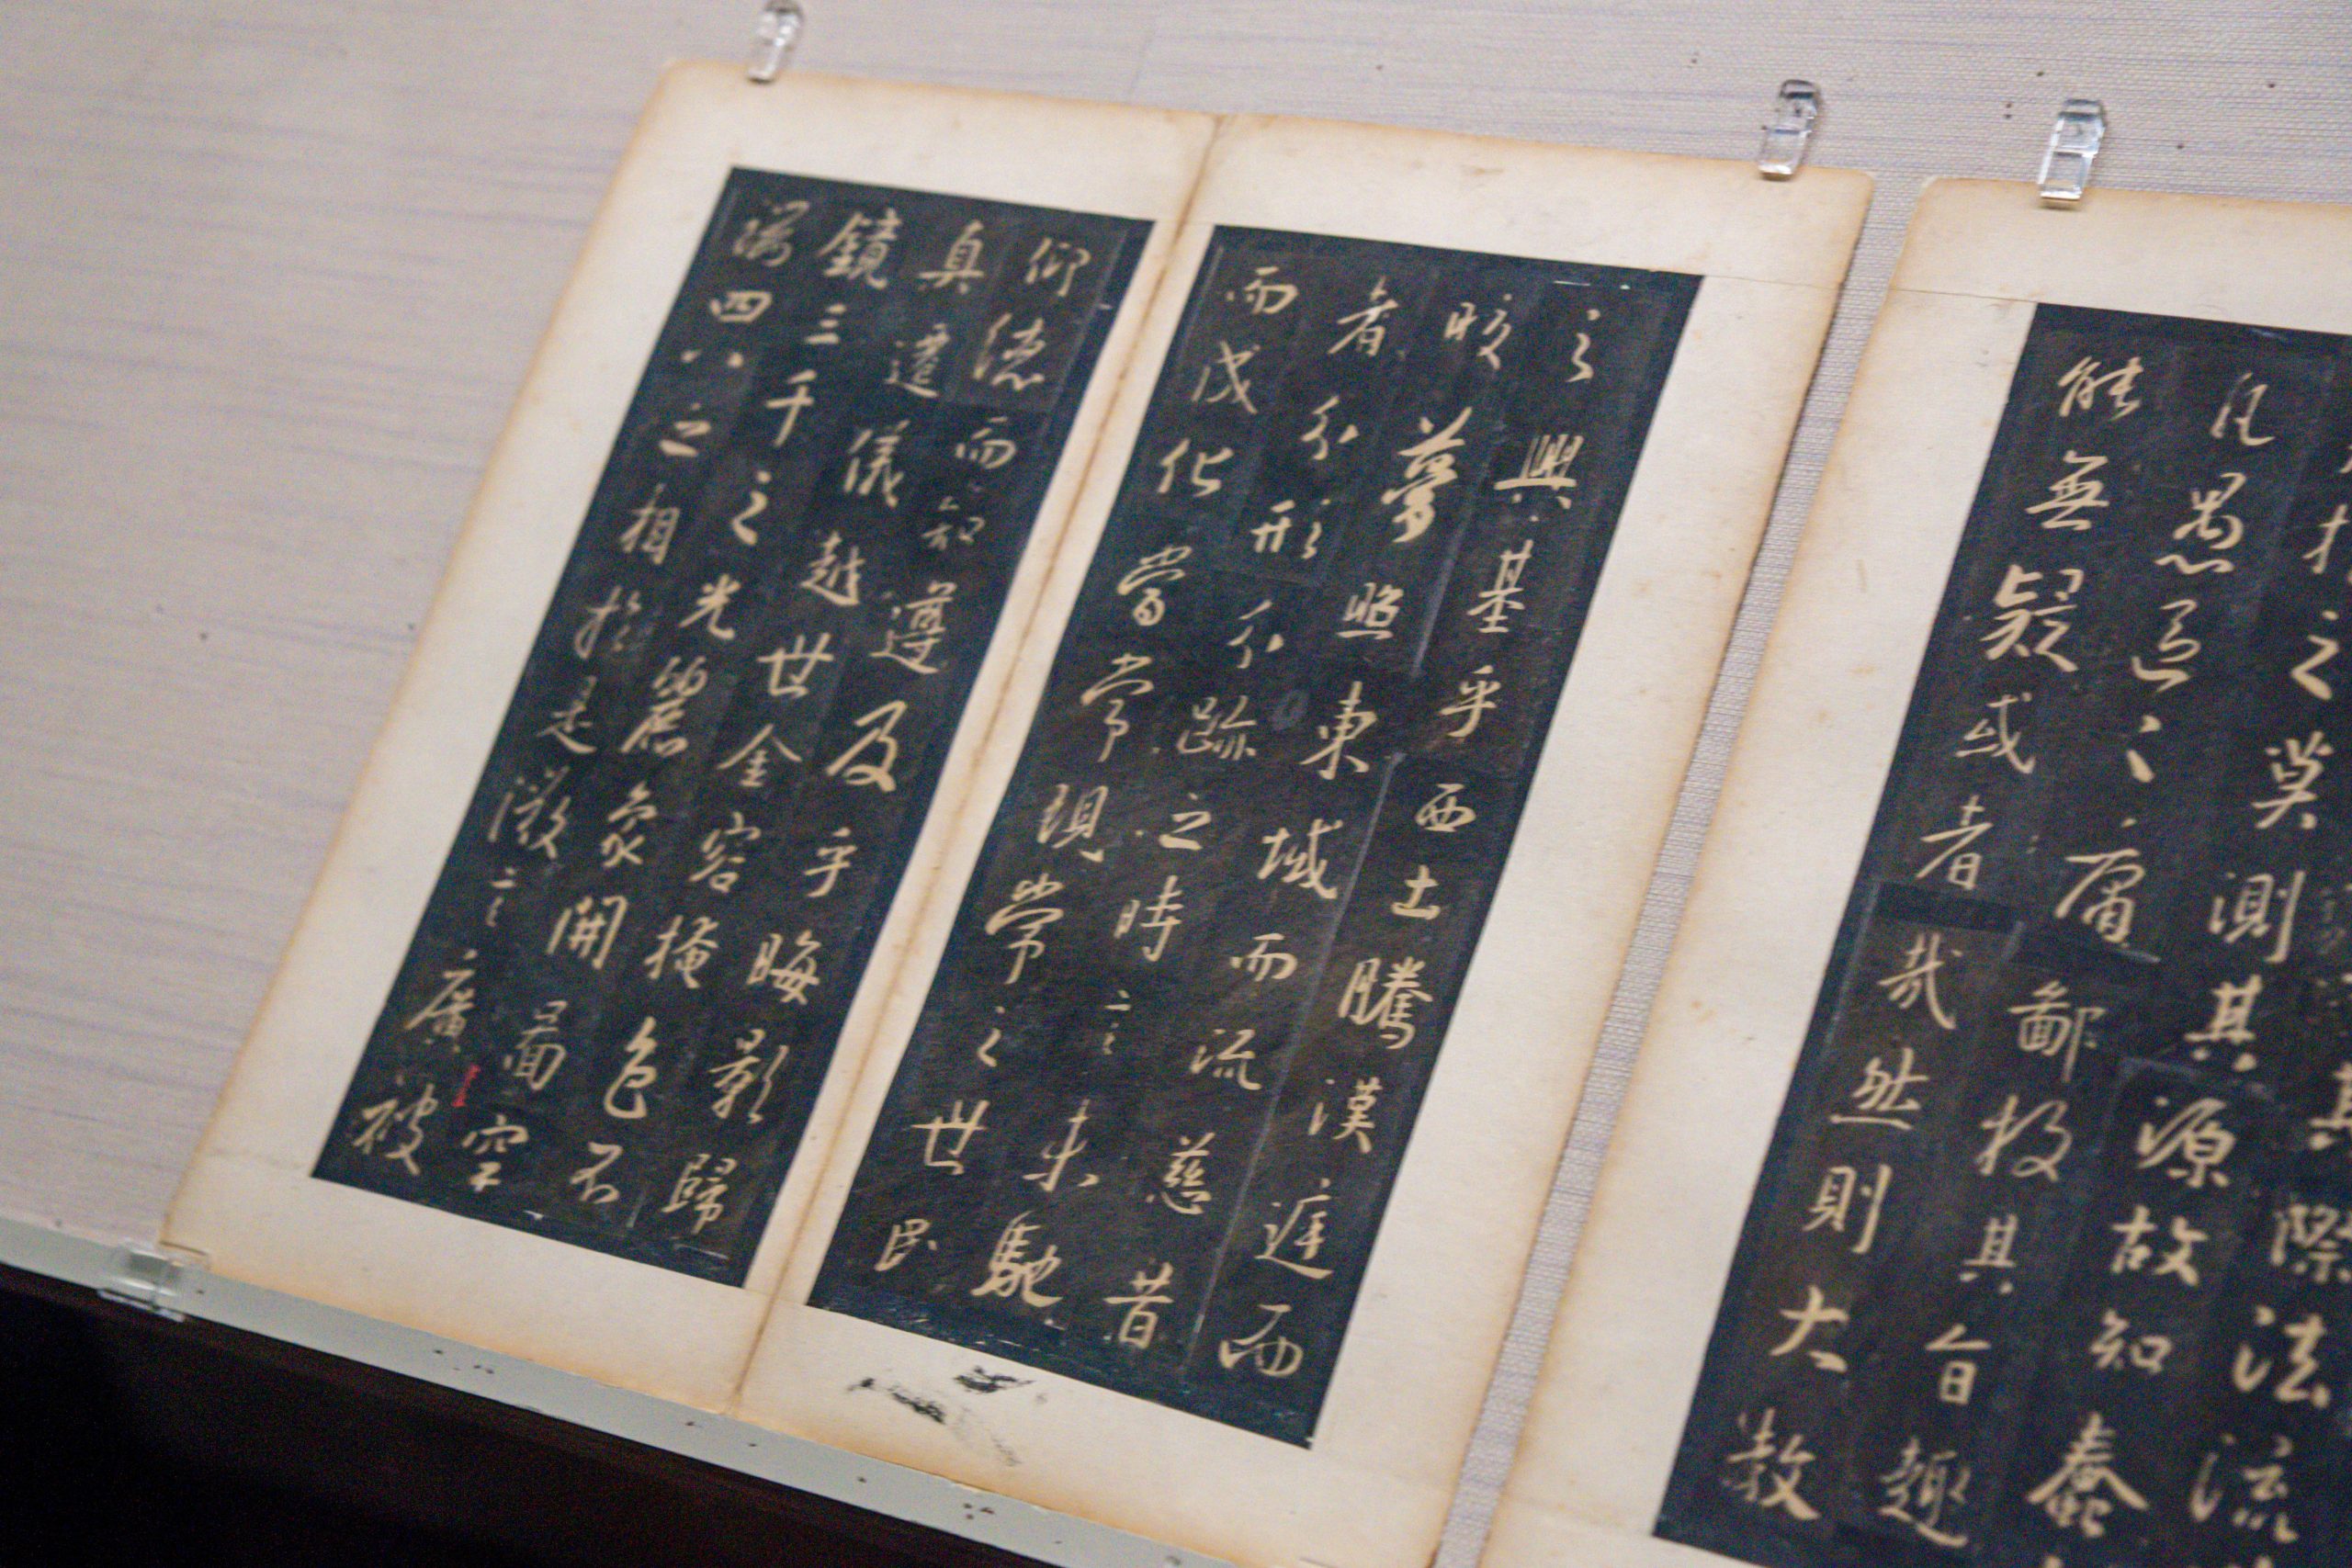 其際法流
挹之莫測其源故知蠢
凡愚區〻庸鄙投其旨趣
能無疑或者哉然則大教
之興基乎西土騰漢庭而
晈夢照東域而流慈昔
者分形分跡之時言未馳
而成化當常現常之世民
仰德而知遵及乎晦影歸
真遷儀越世金容掩色不
鏡三千之光麗象開圖空
端四八之相於是微言廣被